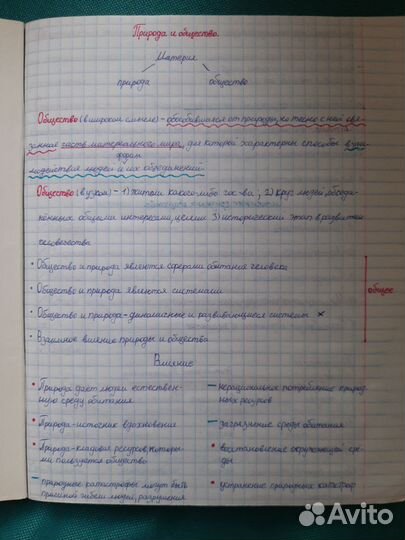 Природа и общество.
Материя
природа общество
Общество (в широком смысле) - обособившаяся от природы, но тесно с ней свя-
занная часть материального мира, для которой характерен способы взаи-
формы
модействия людей и их объединений.
Общество (в узком) - 1) жители какого-либо гос-ва; 2) круг людей, объеди-
нённых общими интересами, целями 3) исторический этап в развитии
человечества
• Общество и природа являются сферами обитания человека
• Общество и природа являются системами
общее
• Общество и природа - динамичные и развивающиеся системы ×
• Взаимное влияние природы и общества
Влияние
• Природа даёт людям естествен-
ную среду обитания
• Природа - источник вдохновения
• Природа - кладовая ресурсов, которы-
ми пользуется общество
– природные катастрофы могут быть
причиной гибели людей, разрушения
– нерациональное потребление природ-
ных ресурсов
– загрязнение среды обитания
• восстановление окружающей сре-
ды
• устранение природных катастроф
Avito